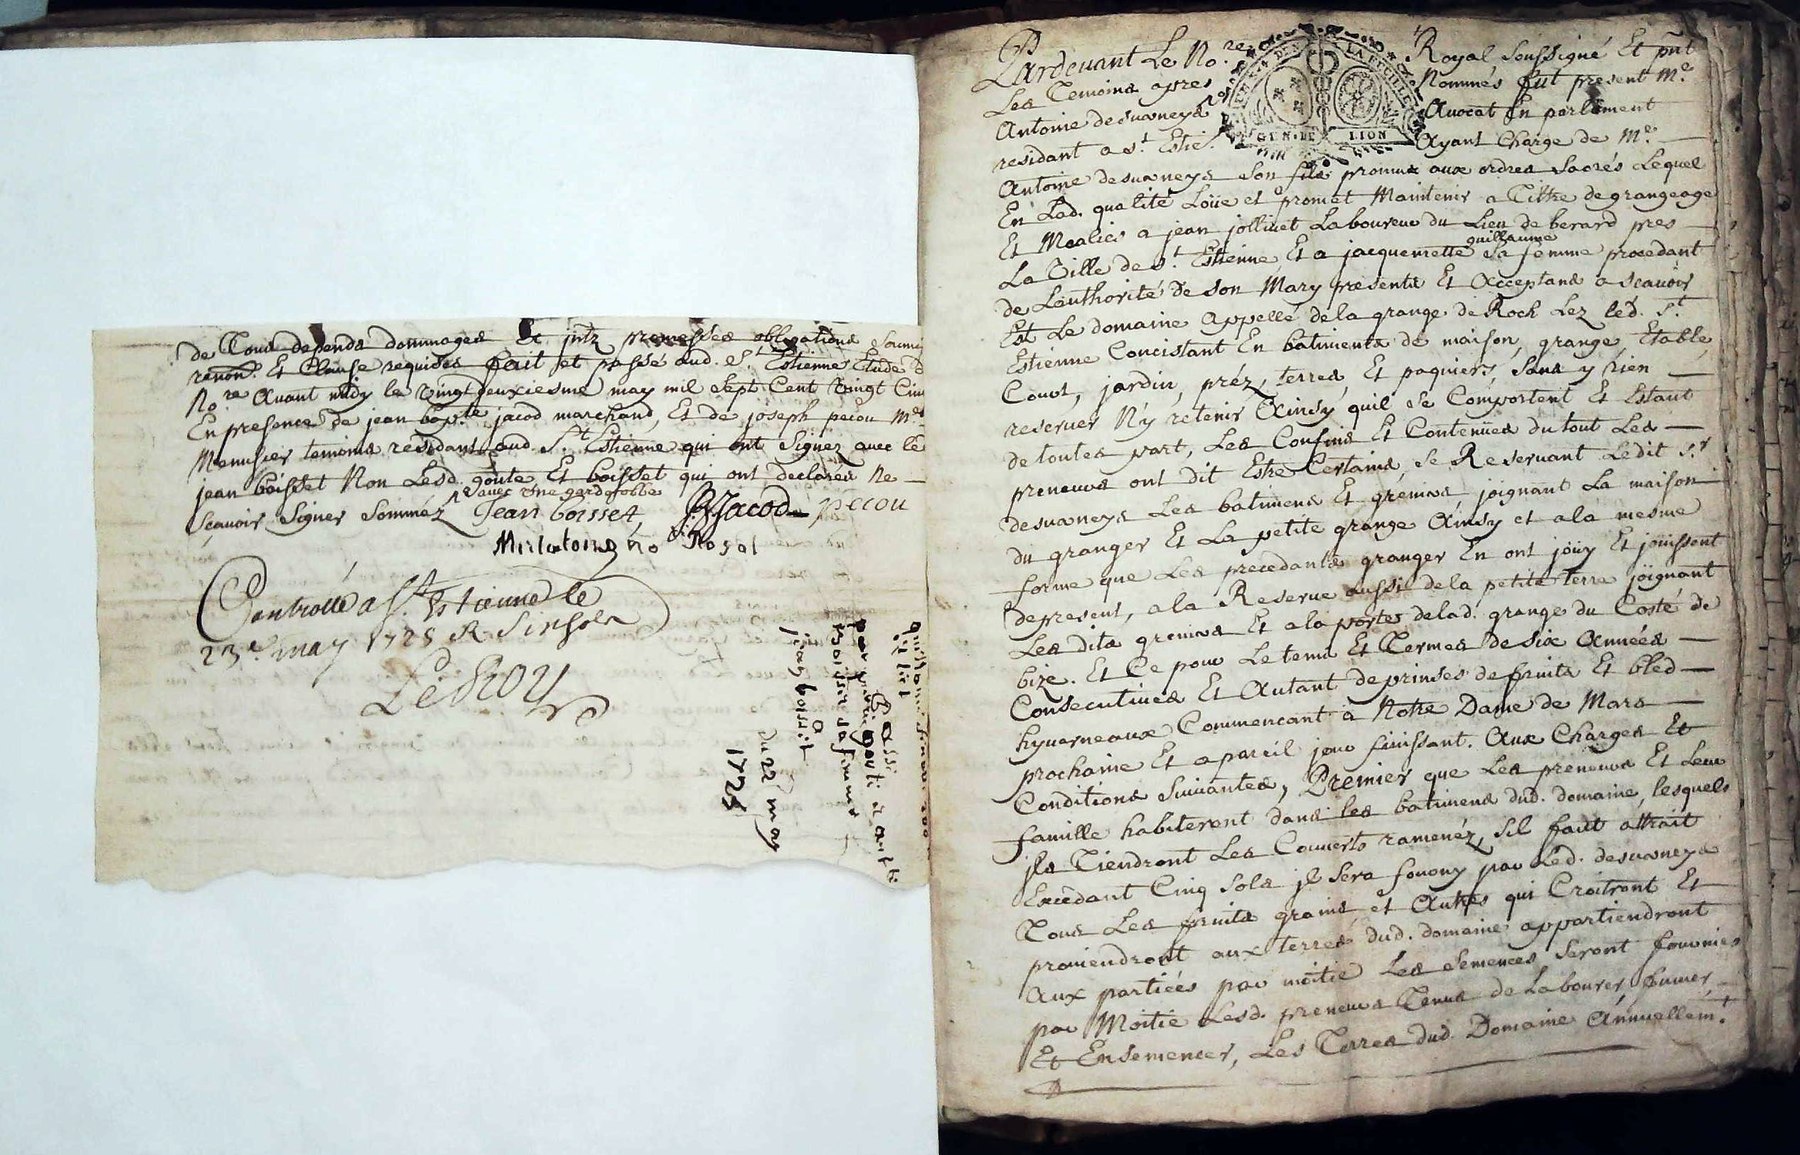 de Tous depends dommages et jntz promesses obligations
renon.on Et Clause requises fait et passé aud. St. Estienne Etude
No.re Avant midy le vingt deuxiesme may mil sept Cent vingt Cinq
En presence de jean bap.te jacod marchand, Et de joseph pecou M.e
Menusier temoins residants aud St. Estienne qui ont Signez avec led
jean boisset Non Lesd. goute Et boisset qui ont declarés Ne
Sçavoir Signer Sommez avec une garderobbe
Jean boisset, JBJacod pecou
no Royal
Controllé a St. Estienne le
23e may 1725 R Six sols
LeRoy
jean boisset
du 22 may
1725
Pardevant Le No.re Royal Soussigné Et pnt
Les Temoins apres Nommés fut present Me.
Antoine desvaneys Avocat En parlement
residant a St. Estie. Ayant Charge de Me.
Antoine desvaneys Son fils promu aux ordres Sacrés Lequel
En Lad. qualité Loüe et promet Maintenir a Tiltre de grangeage
Et a jean jollivet Laboureur du Lieu de berard pres
La Ville de St. Estienne Et a jacquemette guillaume Sa femme procedant
de Lauthorité de son Mary presents Et Acceptans a Scavoir
Est Le domaine appellé de la grange de Roch Lez led. St.
Estienne Concistant En batiments de maison, grange, Etable,
Court, jardin, préz, terres, Et paquiers, Sans y rien
reserver N'y retenir Ainsy quil se Comportent Et Estant
de toutes part, Les Confins Et Contenües du tout Les
preneurs ont dit Estre Certains, Se Reservant Ledit Sr
desvaneys Les batimens Et greniers joignant La maison
du granger Et La petite grange Ainsy et a la mesme
forme que Les precedants granger En ont jöüy Et joüissent
depresent, a la Reserve aussi de la petite terre joignant
Les dits greniers Et a la porte de lad. grange du Costé de
bize. Et Ce pour Le tems Et Termes de Six Années
Consecutives Et Autant de prinses de fruits Et bled
hyverneaux Commencant a Notre Dame de Mars
prochaine Et a pareil jour finissant. Aux Charges Et
Conditions Suivantes, Premier que Les preneurs Et Leur
famille habiteront dans les batimens dud. domaine, lesquels
jls Tiendront Les Couverts ramenéz, sil faut attrait
Excedant Cinq Sols jl Sera fourny par Led. desvaneys
Tous Les fruits grains et Autres qui Croîtront Et
proviendront aux terres dud. domaine appartiendront
Aux partiées par moitié Les Semences Seront fournies
par Moitié Lesd. preneurs Tenus de Labourer, fumer
Et Ensemencer, Les Terres dud. Domaine Annuellem.t